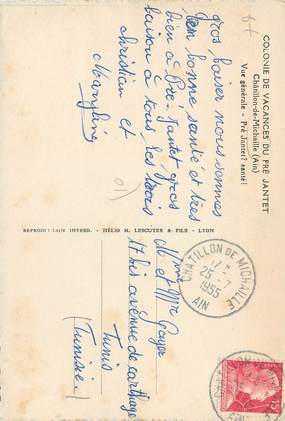 COLONIE DE VACANCES DU PRE JANTET
Châtillon-de-Michaille (Ain)
Vue générale - Pré Jantet? santé!
gros baiser nous sommes
en bonne santé et tres
bien a Pré-Jantet gros
baison a tous les trois
christian et
Maryline
REPRODUCTION INTERD. - HÉLIO M. LESCUYER & FILS - LYON
M et Mme Gayer
17 bis avenue de carthage
Tunis
(Tunisie)
CHATILLON DE MICHAILLE
17 H
25 - 7
1955
AIN
15F